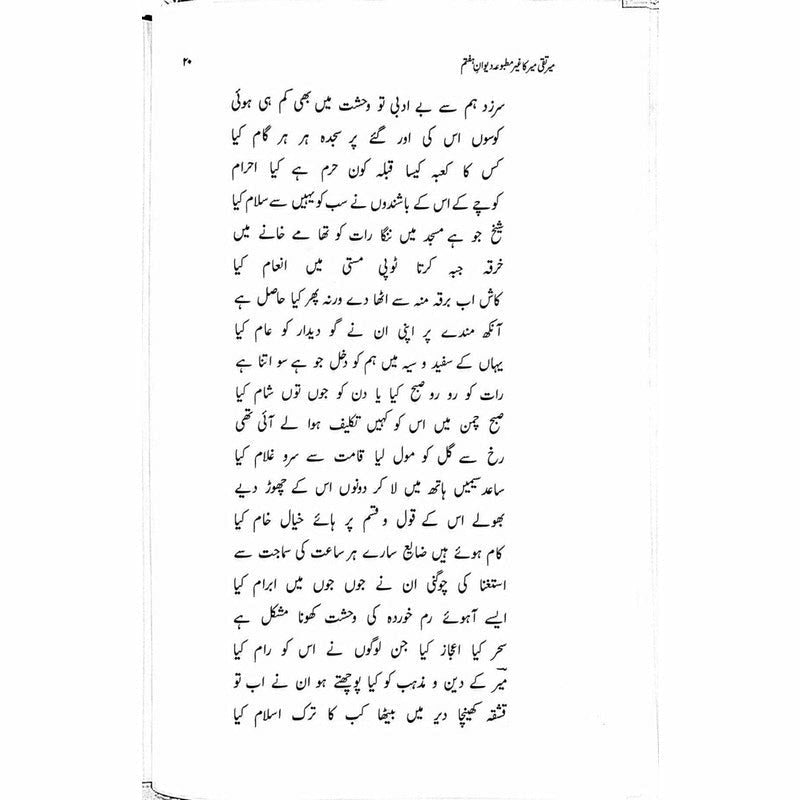 میر تقی میر کا غیر مطبوعہ دیوانِ ہفتم
۲۰
سرزد ہم سے بے ادبی تو وحشت میں بھی کم ہی ہوئی
کوسوں اس کی اور گئے پر سجدہ ہر ہر گام کیا
کس کا کعبہ کیسا قبلہ کون حرم ہے کیا احرام
کوچے کے اس کے باشندوں نے سب کو یہیں سے سلام کیا
شیخ جو ہے مسجد میں ننگا رات کو تھا مے خانے میں
خرقہ جبہ کرتا ٹوپی مستی میں انعام کیا
کاش اب برقہ منہ سے اٹھا دے ورنہ پھر کیا حاصل ہے
آنکھ مندے پر اپنی ان نے گو دیدار کو عام کیا
یہاں کے سفید و سیہ میں ہم کو دخل جو ہے سو اتنا ہے
رات کو رو رو صبح کیا یا دن کو جوں توں شام کیا
صبح چمن میں اس کو کہیں تکلیف ہوا لے آئی تھی
رخ سے گل کو مول لیا قامت سے سرو غلام کیا
ساعد سیمیں ہاتھ میں لا کر دونوں اس کے چھوڑ دیے
بھولے اس کے قول و قسم پر ہائے خیال خام کیا
کام ہوئے ہیں ضایع سارے ہر ساعت کی سماجت سے
استغنا کی چوگنی ان نے جوں جوں میں ابرام کیا
ایسے آہوئے رم خوردہ کی وحشت کھونا مشکل ہے
سحر کیا اعجاز کیا جن لوگوں نے اس کو رام کیا
میرؔ کے دین و مذہب کو کیا پوچھتے ہو ان نے اب تو
قشقہ کھینچا دیر میں بیٹھا کب کا ترک اسلام کیا